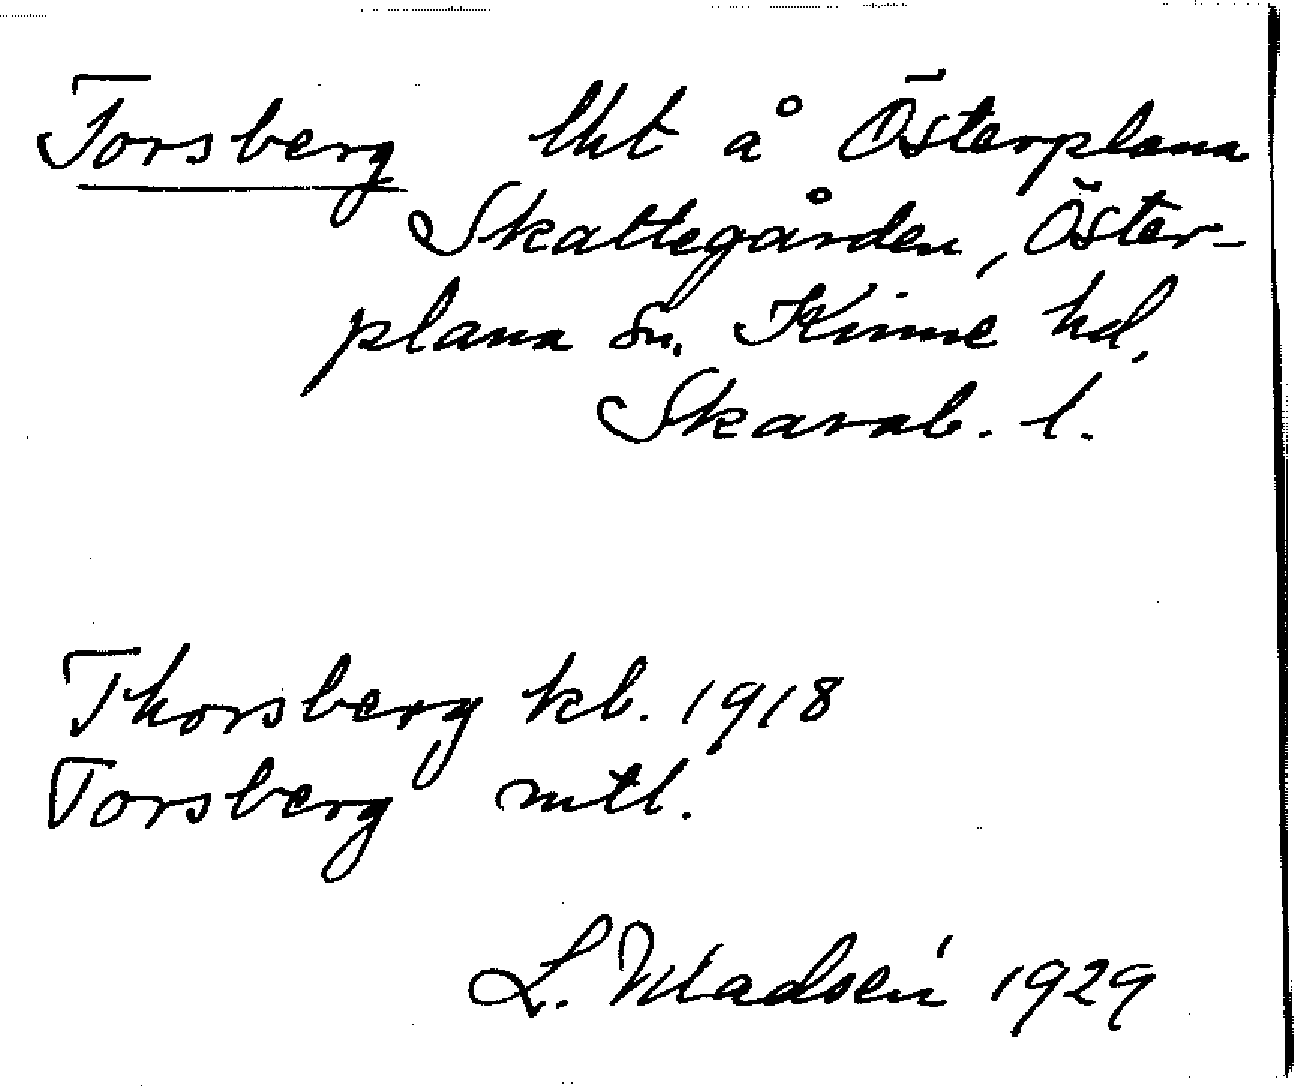 Torsberg lht å Österplana
Skattegården, Öster-
plana sn. Kinne hd,
Skarab. l.
Thorsberg kb. 1918
Torsberg mtl.
L. Madsén 1929